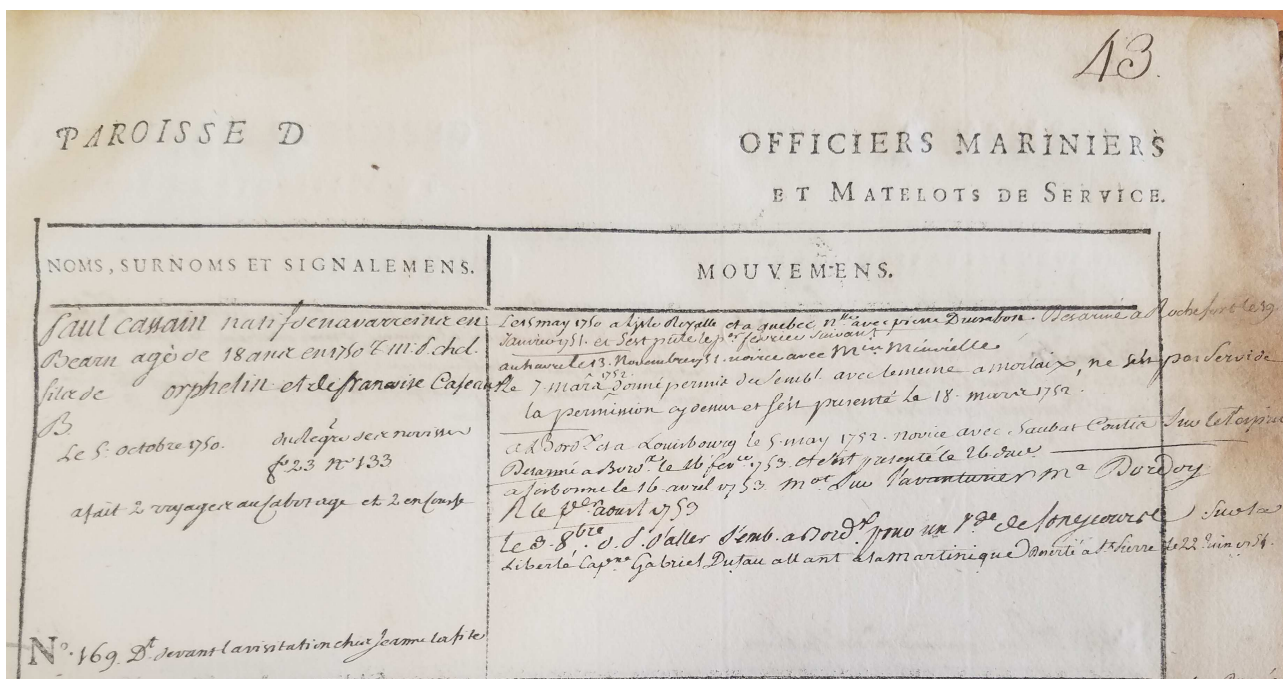 43.
PAROISSE D
OFFICIERS MARINIERS
ET MATELOTS DE SERVICE.
NOMS, SURNOMS ET SIGNALEMENS.
MOUVEMENS.
Paul Cassain natif de navarreinx en
Bearn agé de 18 ans en 1750 T. m. P. chat.
fils de orphelin et de françoise Caseaux
B.
Le 5 octobre 1750. du Regre des novisses
fo 23 no 133
a fait 2 voyages au Cabotage et 2 en Course
No. 169. Dt devant la visitation chez Jeanne lafite
Le 15 may 1750 a lisle Royalle et a quebec avec pierre Desarmé a Rochefort le 19.
Janvier 1751. et s'est pnté le per fevrier suivant
au havre le 13. Novembre 1751. novice avec
Le 7 mars 1752. donné permis de semb. avec le meme a morlaix, ne s'est pas Servi de
la permission cy dessus et s'est presenté le 18. mars 1752.
a Bordx et a Louisbourg le 5. may 1752. novice avec Saubat Sur le
Desarmé a Bordx le 16 1753. et s'est presenté le 26 dud
le 16 avril 1753. mot Sur l'avanturier Me Bordoy
R le per aoust 1753
le 3. 8bre d. P. d'aller s'emb. a Bordx pour un de long cours Sur la
Liberté Capne Gabriel Dutau allant a la martinique Deserté a St Pierre le 22 Juin 1754.